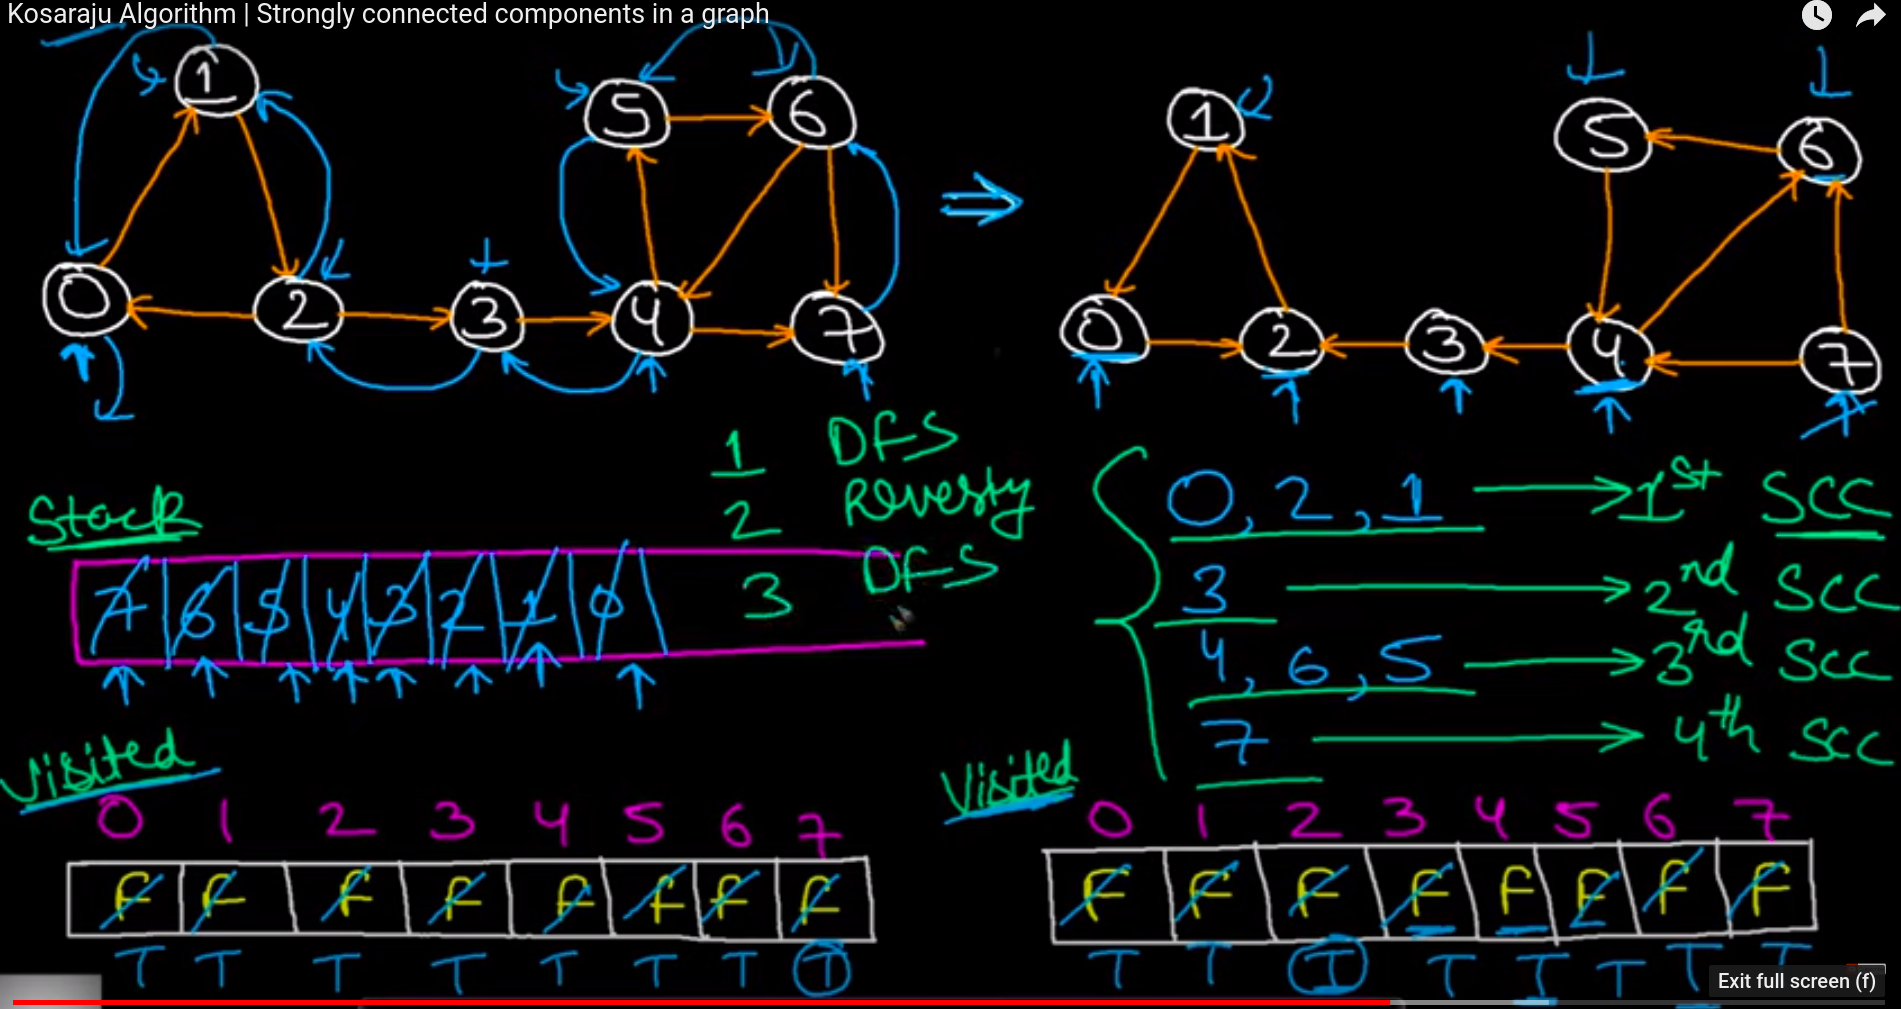 Kosaraju Algorithm | Strongly connected components in a graph
1 5 6
0 2 3 4 7
1 5 6
0 2 3 4 7
1 DFS
2 Reversty
3 DFS
Stack
7 6 5 4 3 2 1 0
0, 2, 1 1st SCC
3 2nd SCC
4, 6, 5 3rd SCC
7 4th SCC
Visited
0 1 2 3 4 5 6 7
F F F F F F F F
T T T T T T T T
Visited
0 1 2 3 4 5 6 7
F F F F F F F F
T T T T T T T T
Exit full screen (f)